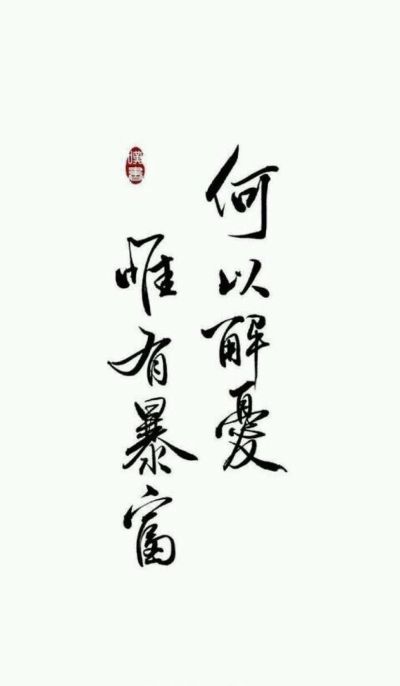 何以解憂
惟有暴富